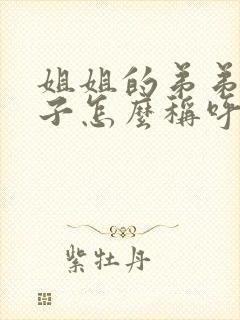 姐姐的弟弟
子怎麼稱呼
紫牡丹